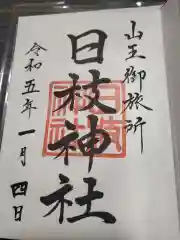 山王御旅所
日枝神社
令和五年一月四日